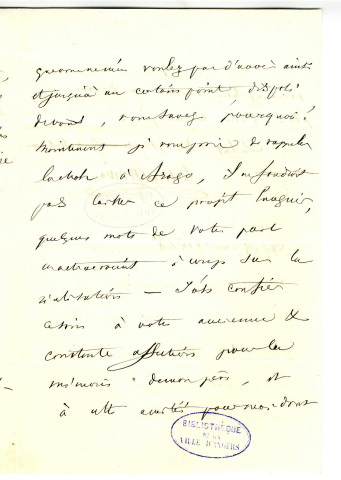 que vous ne m'en voulez pas d'avoir ainsi
et jusqu'à un certain point disposé
de vous, vous savez pourquoi!
Maintenant je vous prie de rappeler
la chose à Arago, il ne faudrait
pas laisser ce projet languir,
quelques mots de votre part
sur la
réalisation — J'ose confier
ce soin à votre ancienne &
constante affection pour la
mémoire de mon père, et
à cette amitié pour moi dont
BIBLIOTHÈQUE
DE LA
VILLE D'ANGERS